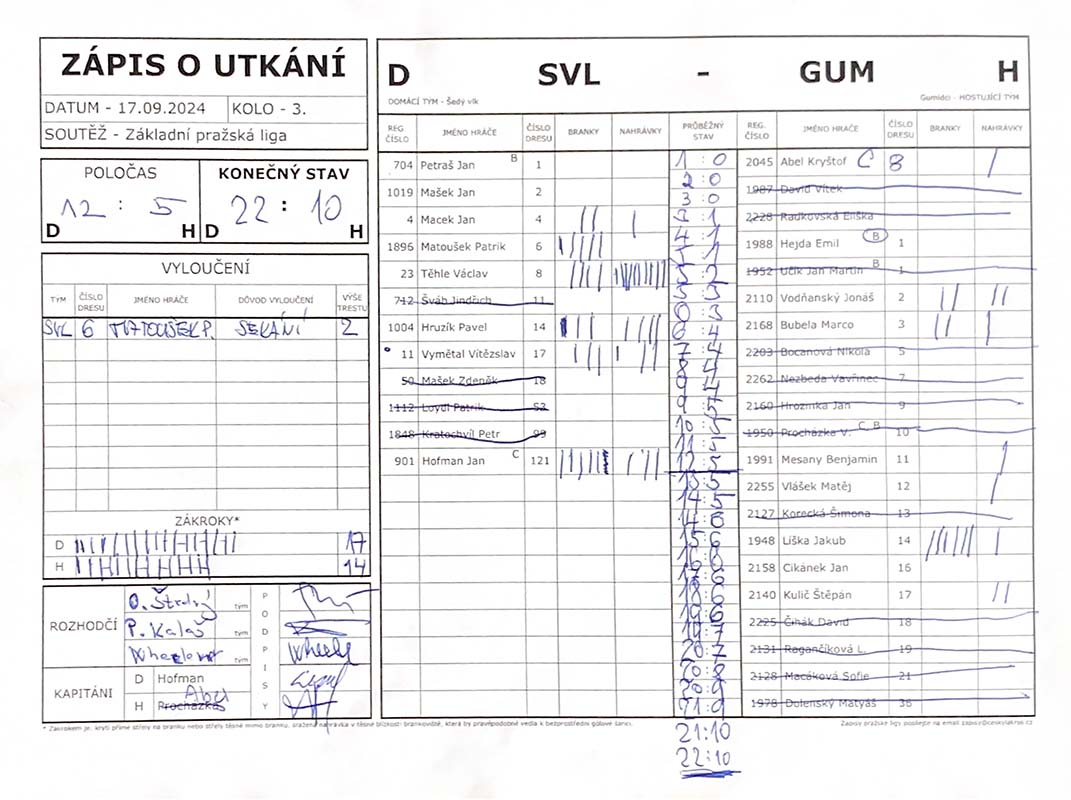 ZÁPIS O UTKÁNÍ
DATUM - 17.09.2024 KOLO - 3.
SOUTĚŽ - Základní pražská liga
POLOČAS
12 : 5
D H
KONEČNÝ STAV
22 : 10
D H
VYLOUČENÍ
TÝM ČÍSLO DRESU JMÉNO HRÁČE DŮVOD VYLOUČENÍ VÝŠE TRESTU
SVL 6 MATOUŠEK P. SEKÁNÍ 2
ZÁKROKY*
D 17
H 14
ROZHODČÍ
tým
P. Kalaš tým
tým
PODPISY
KAPITÁNI
D Hofman
H Procházka Abel
D SVL - GUM H
DOMÁCÍ TÝM - Šedý vlk Gumídci - HOSTUJÍCÍ TÝM
REG. ČÍSLO JMÉNO HRÁČE ČÍSLO DRESU BRANKY NAHRÁVKY PRŮBĚŽNÝ STAV REG. ČÍSLO JMÉNO HRÁČE ČÍSLO DRESU BRANKY NAHRÁVKY
704 Petraš Jan B 1
1019 Mašek Jan 2
4 Macek Jan 4
1896 Matoušek Patrik 6
23 Těhle Václav 8
712 Šváb Jindřich 11
1004 Hruzík Pavel 14
11 Vymětal Vítězslav 17
50 Mašek Zdeněk 18
1112 Loydl Patrik 52
1848 Kratochvíl Petr 99
901 Hofman Jan C 121
1 : 0
2 : 0
3 : 0
3 : 1
4 : 1
5 : 1
5 : 2
5 : 3
6 : 3
6 : 4
7 : 4
8 4
9 4
9 : 5
10 : 5
11 : 5
12 : 5
13 : 5
14 : 5
14 : 6
15 : 6
16 : 6
17 : 6
18 : 6
19 : 6
19 : 7
20 : 7
20 : 8
20 : 9
21 : 9
21:10
22:10
2045 Abel Kryštof C 8
1987 David Vítek
2228 Radkovská Eliška
1988 Hejda Emil B 1
1952 Učík Jan Martin B 1
2110 Vodňanský Jonáš 2
2168 Bubela Marco 3
2203 Bocanová Nikola 5
2262 Nezbeda Vavřinec 7
2160 Hrozinka Jan 9
1950 Procházka V. C, B 10
1991 Mesany Benjamin 11
2255 Vlášek Matěj 12
2127 Korecká Šimona 13
1948 Liška Jakub 14
2158 Cikánek Jan 16
2140 Kulič Štěpán 17
2225 Čihák David 18
2131 Ragančíková L. 19
2128 Macáková Sofie 21
1978 Dolenský Matyáš 36
* Zákrokem je: krytí přímé střely na branku nebo střely těsně mimo branku, sražená nahrávka v těsné blízkosti brankoviště, která by pravděpodobně vedla k bezprostřední gólové šanci.
Zápisy pražské ligy posílejte na email zapisy@ceskylakros.cz